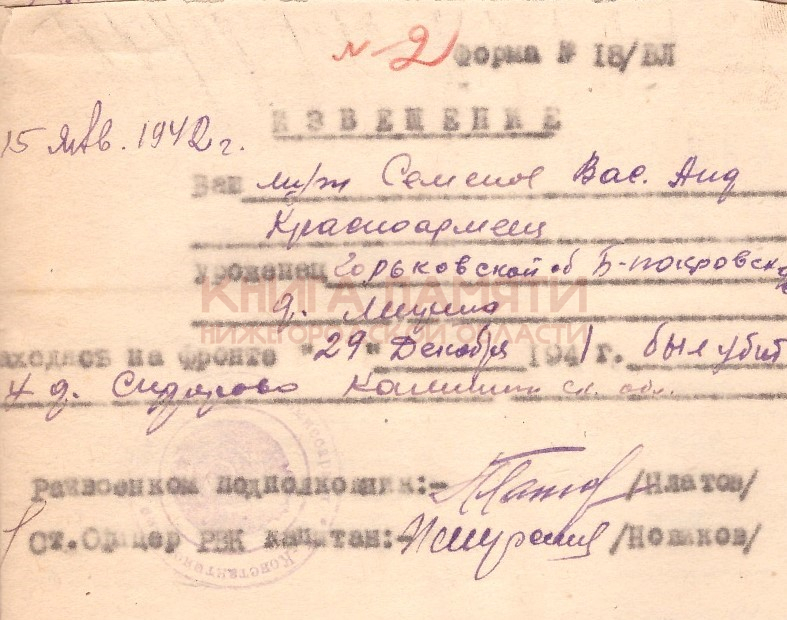 № 2 Форма № 18/БЛ
ИЗВЕЩЕНИЕ
15 янв. 1942 г.
Ваш муж Семенов Вас. Анд
Красноармеец
уроженец Горьковской об Б-покровск
д.
КНИГА ПАМЯТИ
НИЖЕГОРОДСКОЙ ОБЛАСТИ
аходясь на фронте "29" Декабря 1941 г. был убит
д. Сидорово Калинин ск. обл.
Райвоенком подполковник:- /Платов/
Ст.Офицер РВК капитан:- /Новиков/